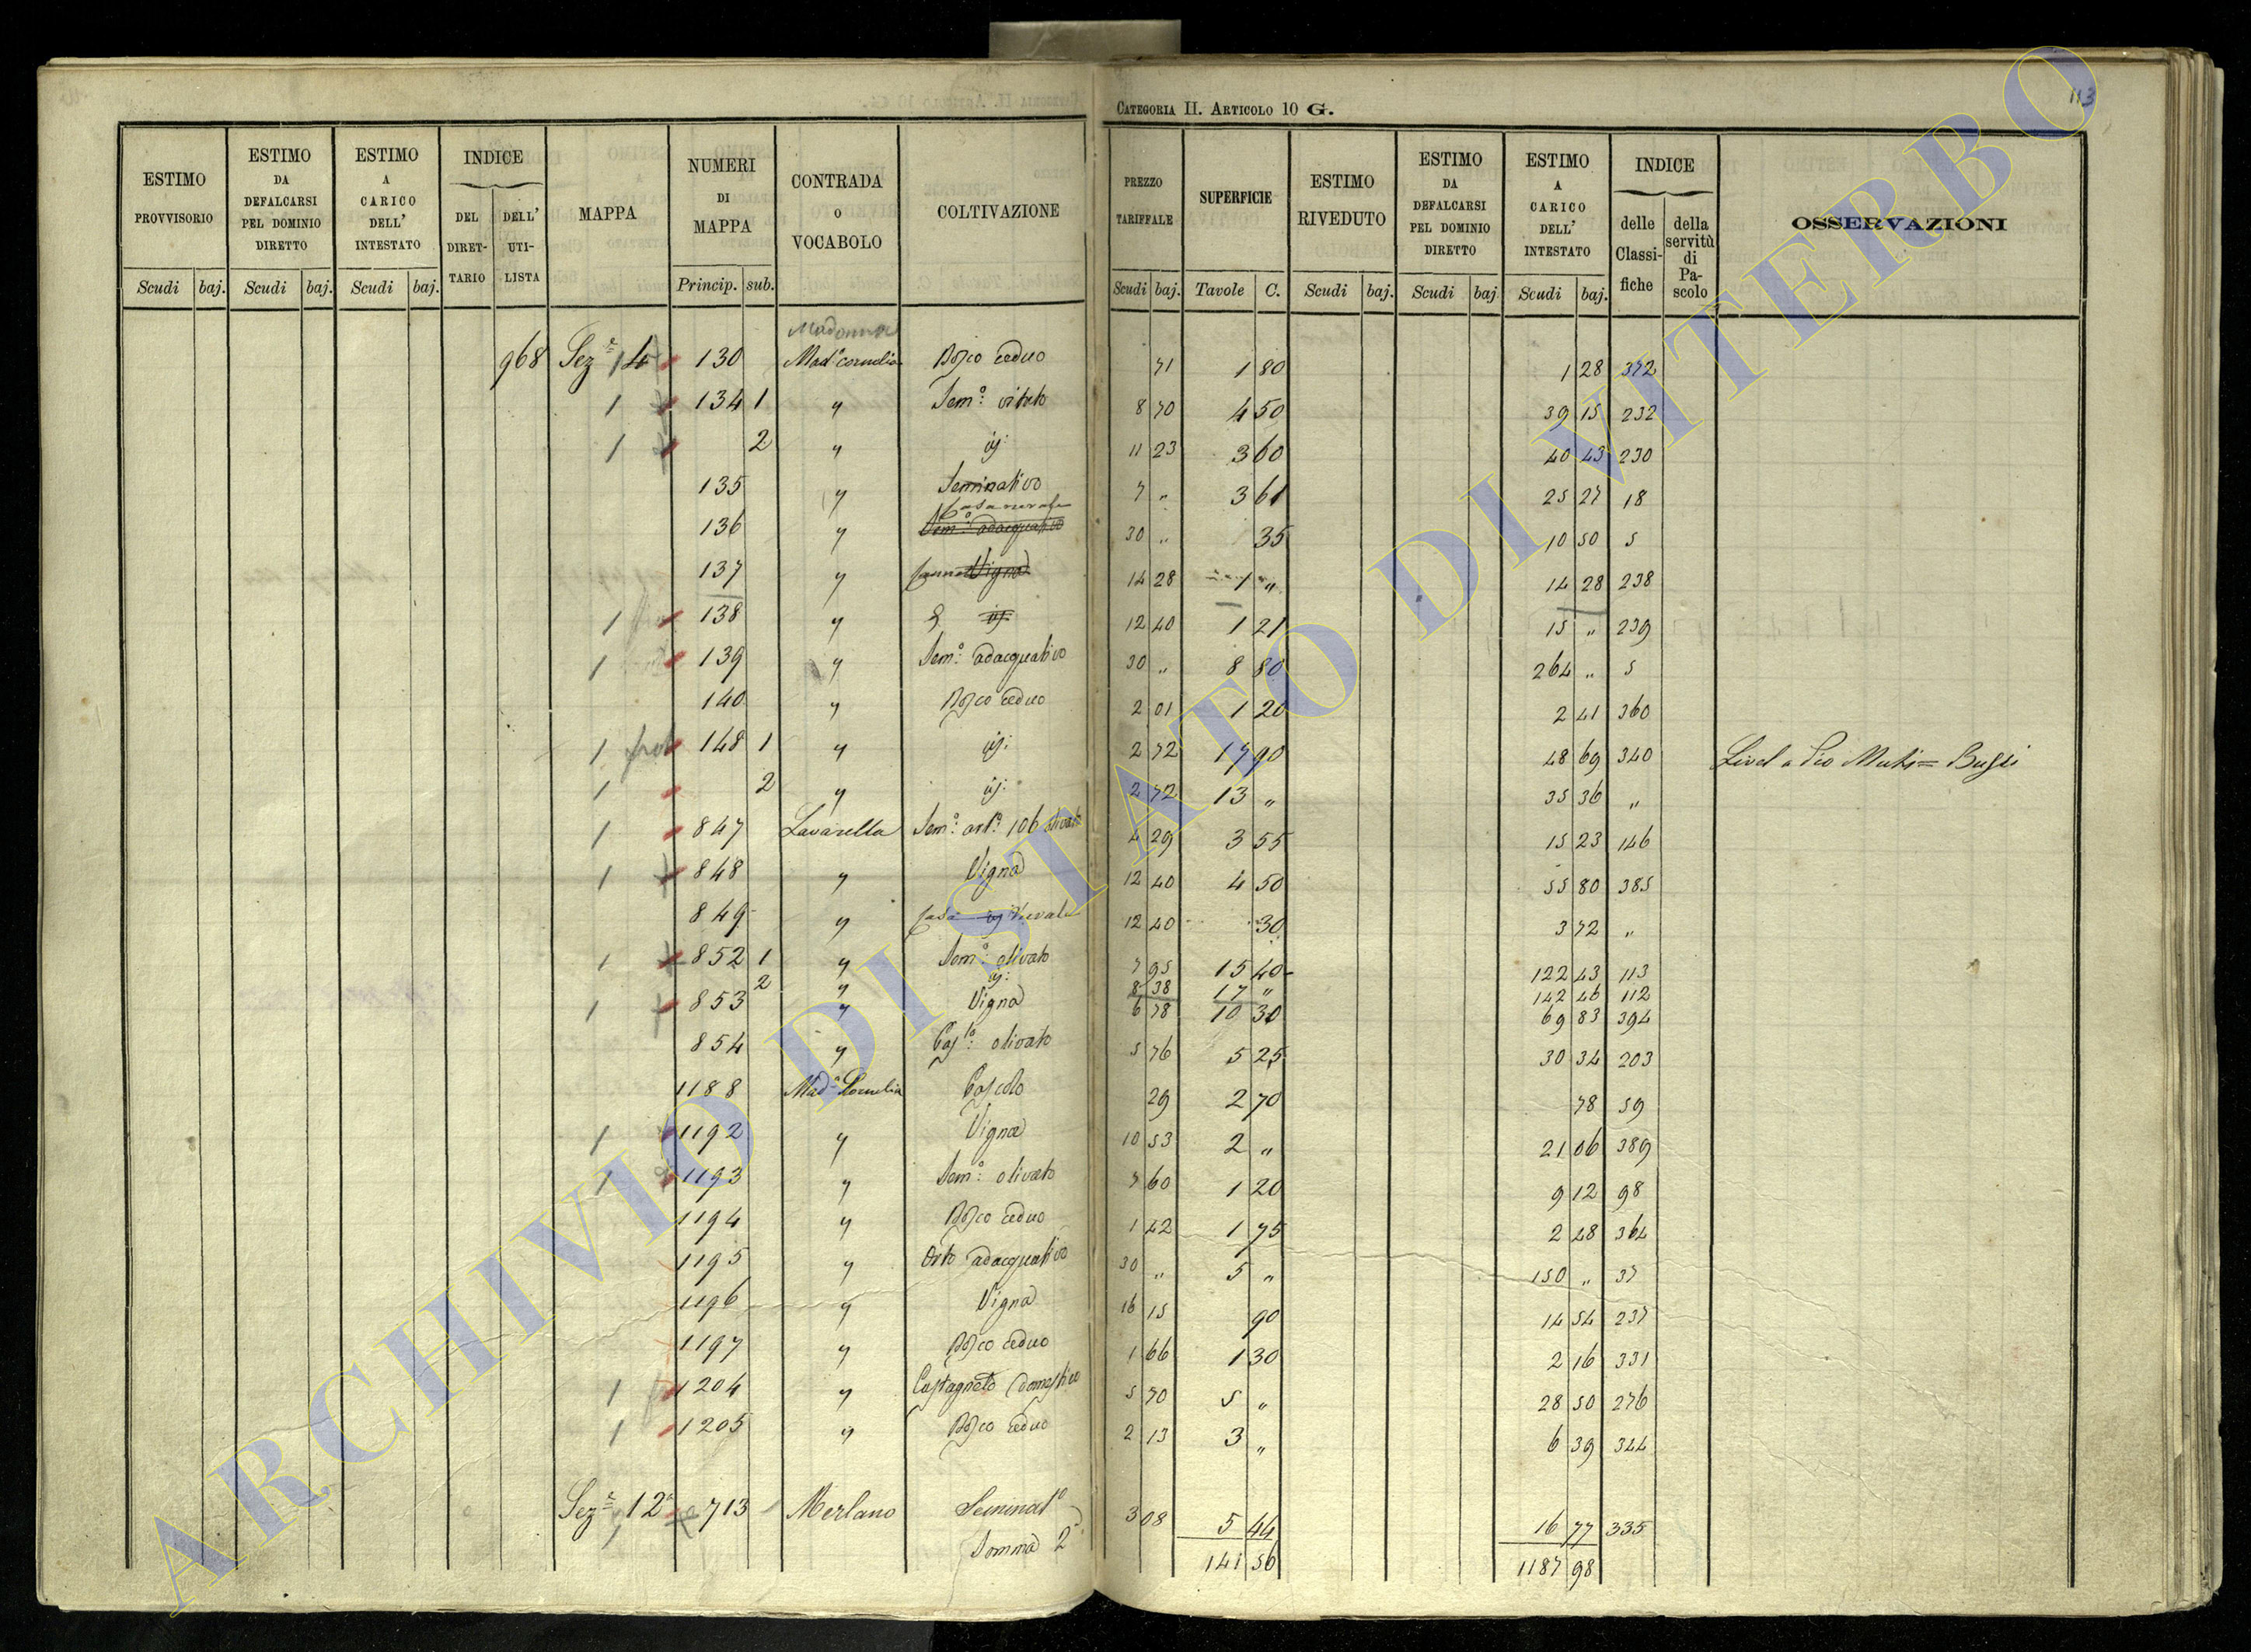 CATEGORIA II. ARTICOLO 10 G.
113
ESTIMO PROVVISORIO
ESTIMO DA DEFALCARSI PEL DOMINIO DIRETTO
ESTIMO A CARICO DELL' INTESTATO
INDICE
DEL DIRETTARIO
DELL' UTILISTA
MAPPA
NUMERI DI MAPPA
CONTRADA O VOCABOLO
COLTIVAZIONE
PREZZO TARIFFALE
SUPERFICIE
ESTIMO RIVEDUTO
ESTIMO DA DEFALCARSI PEL DOMINIO DIRETTO
ESTIMO A CARICO DELL' INTESTATO
INDICE
delle Classifiche
della servitù di Pascolo
OSSERVAZIONI
Scudi baj. Scudi baj. Scudi baj. Princip. sub. Scudi baj. Tavole C. Scudi baj. Scudi baj Scudi baj.
Madonna
968 Sez.e 1 4 130 Mad.a Cornelia Bosco ceduo 71 1 80 1 28 372
1 134 1 " Sem.o vitato 8 70 4 50 39 15 232
1 2 " id: 11 23 3 60 40 43 230
135 " Seminativo 7 " 3 61 25 27 18
Casa rurale
136 " Sem.o adacquativo 30 " 35 10 50 5
137 " Vigna 14 28 1 " 14 28 238
1 138 " id: 12 40 1 21 15 " 239
1 139 " Sem.o adacquativo 30 " 8 80 264 " 5
140 " Bosco ceduo 2 01 1 20 2 41 360
1 148 1 " id: 2 72 17 90 48 69 340 Livel a Pio Muti = Bussi
1 2 " id: 2 72 13 " 35 36 "
1 847 Lavarella Sem.o art.o 106 olivato 4 29 3 55 15 23 146
1 848 " Vigna 12 40 4 50 55 80 385
849 " Casa id: Rurale 12 40 30 3 72 "
1 852 1 " Sem.o olivato 7 95 15 40 122 43 113
2 " id: 8 38 17 " 142 46 112
1 853 " Vigna 6 78 10 30 69 83 394
854 " Pas.lo olivato 5 76 5 25 30 34 203
1188 Mad.a Cornelia Pascolo 29 2 70 78 59
1 1192 " Vigna 10 53 2 " 21 06 389
1 1193 " Sem.o olivato 7 60 1 20 9 12 98
1194 " Bosco ceduo 1 42 1 75 2 48 364
1195 " Orto adacquativo 30 " 5 " 150 " 37
1196 " Vigna 16 15 90 14 54 237
1197 " Bosco ceduo 1 66 1 30 2 16 331
1 1204 " Castagneto domestico 5 70 5 " 28 50 276
1 1205 " Bosco ceduo 2 13 3 " 6 39 344
Sez.e 12a 1 713 Merlano Seminat.o 3 08 5 44 16 77 335
Somma 2a 141 56 1187 98
ARCHIVIO DI STATO DI VITERBO